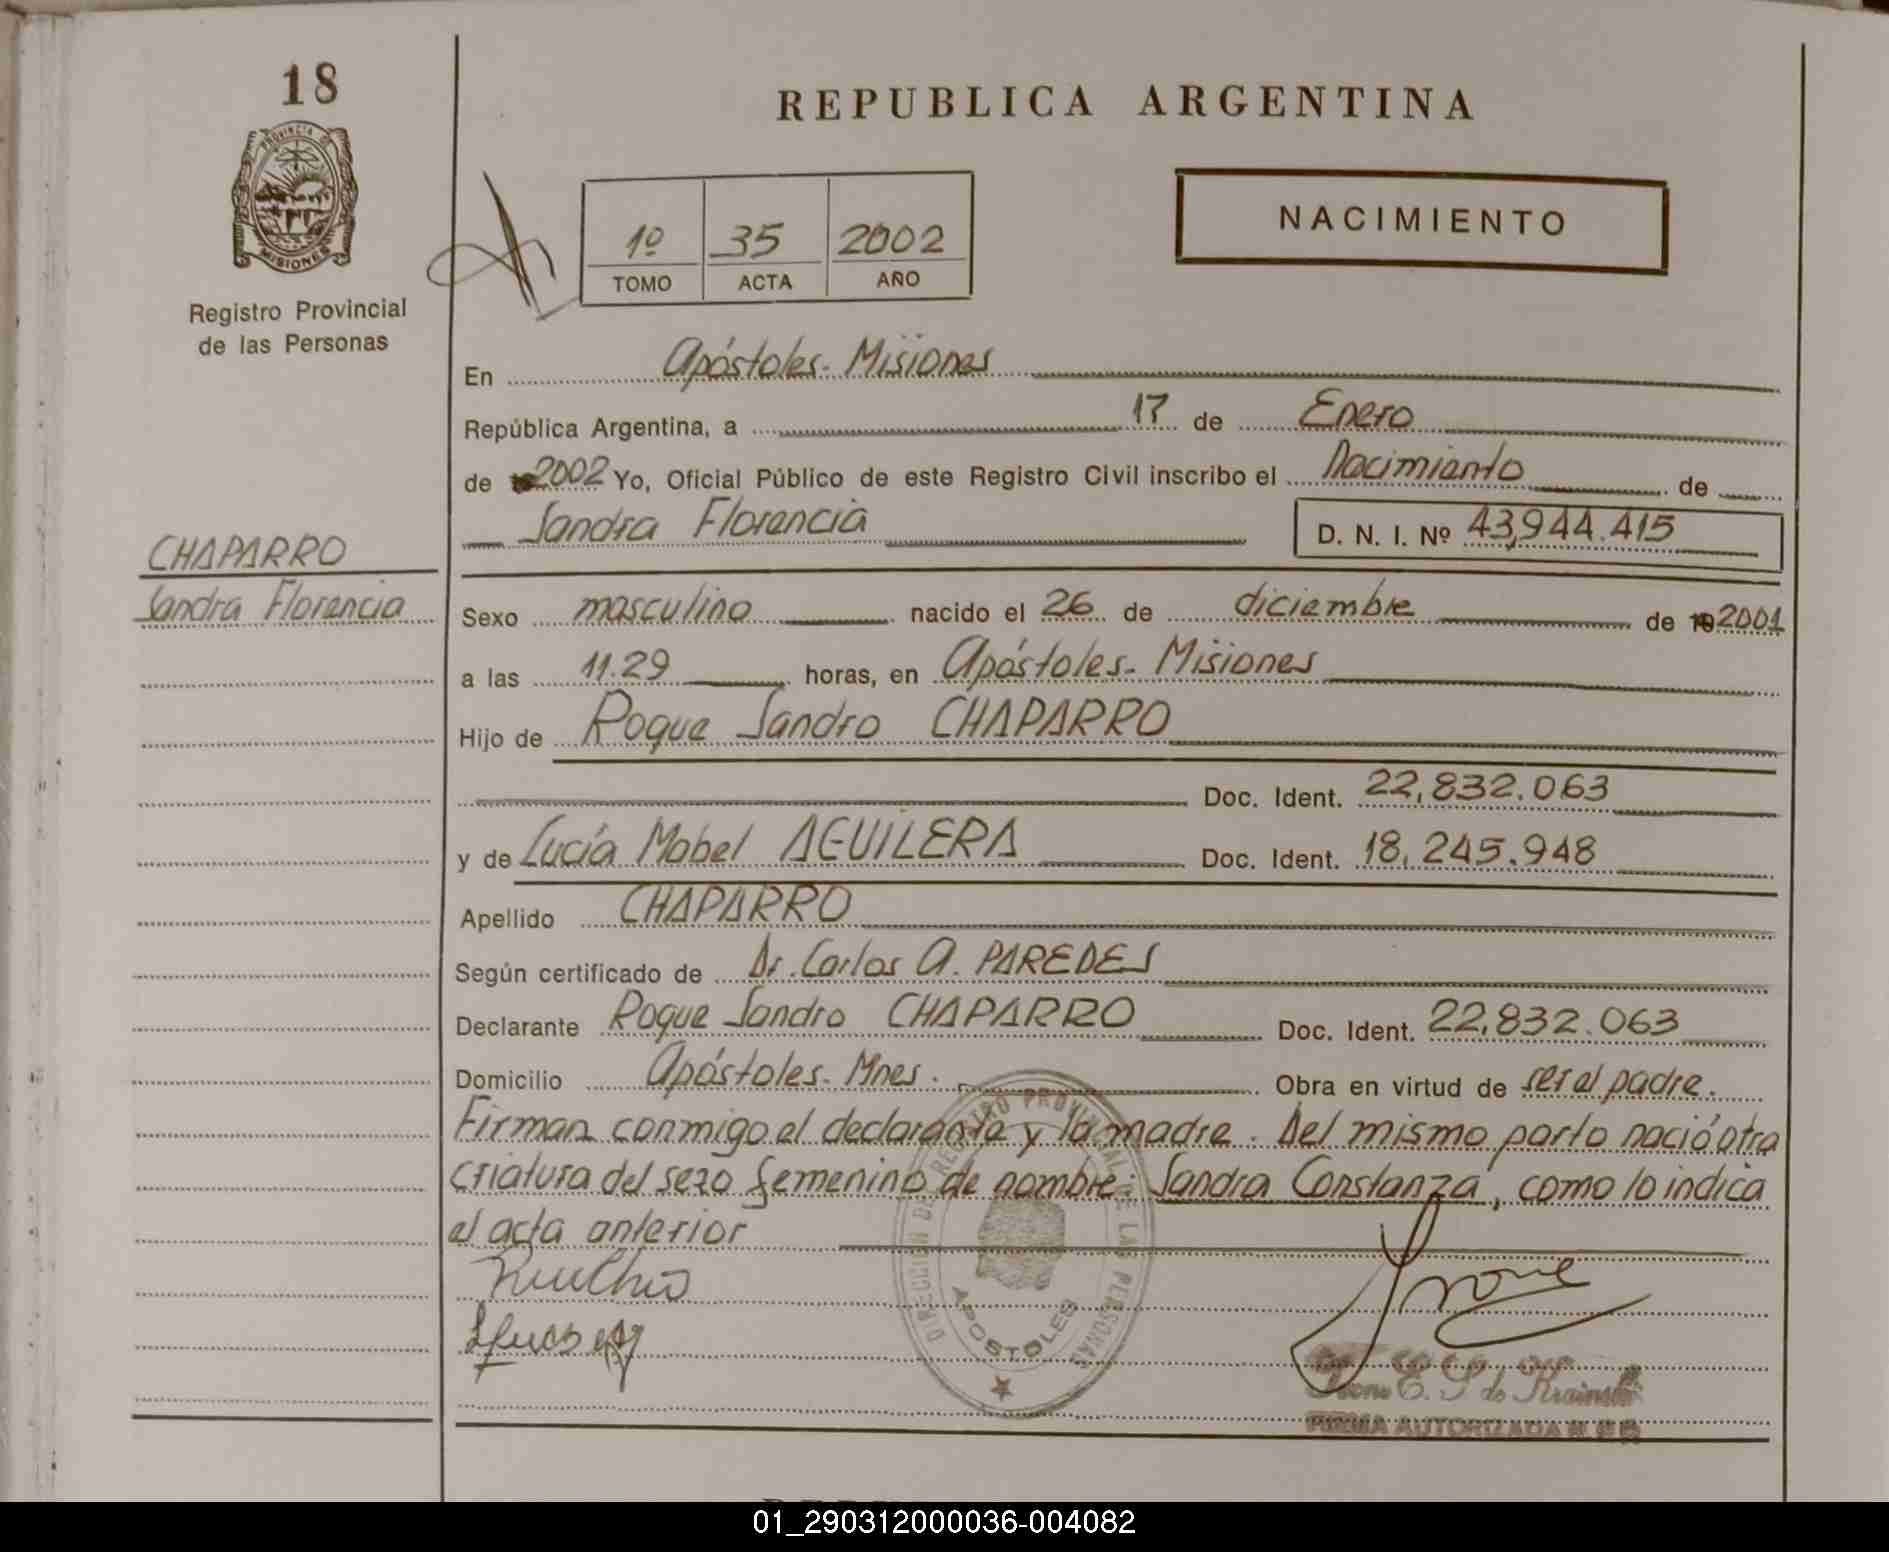 18
REPUBLICA ARGENTINA
PROVINCIA DE
MISIONES
1º 35 2002
TOMO ACTA AÑO
NACIMIENTO
Registro Provincial
de las Personas
En Apóstoles- Misiones
República Argentina, a 17 de Enero
de 2002 Yo, Oficial Público de este Registro Civil inscribo el Nacimiento de
Sandra Florencia D. N. I. Nº 43,944.415
CHAPARRO
Sandra Florencia
Sexo masculino nacido el 26 de diciembre de 2001
a las 11.29 horas, en Apóstoles- Misiones
Hijo de Roque Sandro CHAPARRO
Doc. Ident. 22,832.063
y de Lucía Mabel AGUILERA Doc. Ident. 18,245.948
Apellido CHAPARRO
Según certificado de Dr. Carlos A. PAREDES
Declarante Roque Sandro CHAPARRO Doc. Ident. 22,832.063
Domicilio Apóstoles- Mnes. Obra en virtud de ser el padre.
Firman conmigo el declarante y la madre. Del mismo parto nació otra
criatura del sexo femenino de nombre: Sandra Constanza, como lo indica
el acta anterior
DIRECCION DE REGISTRO PROVINCIAL DE LAS PERSONAS
APOSTOLES
FIRMA AUTORIZADA
01_290312000036-004082